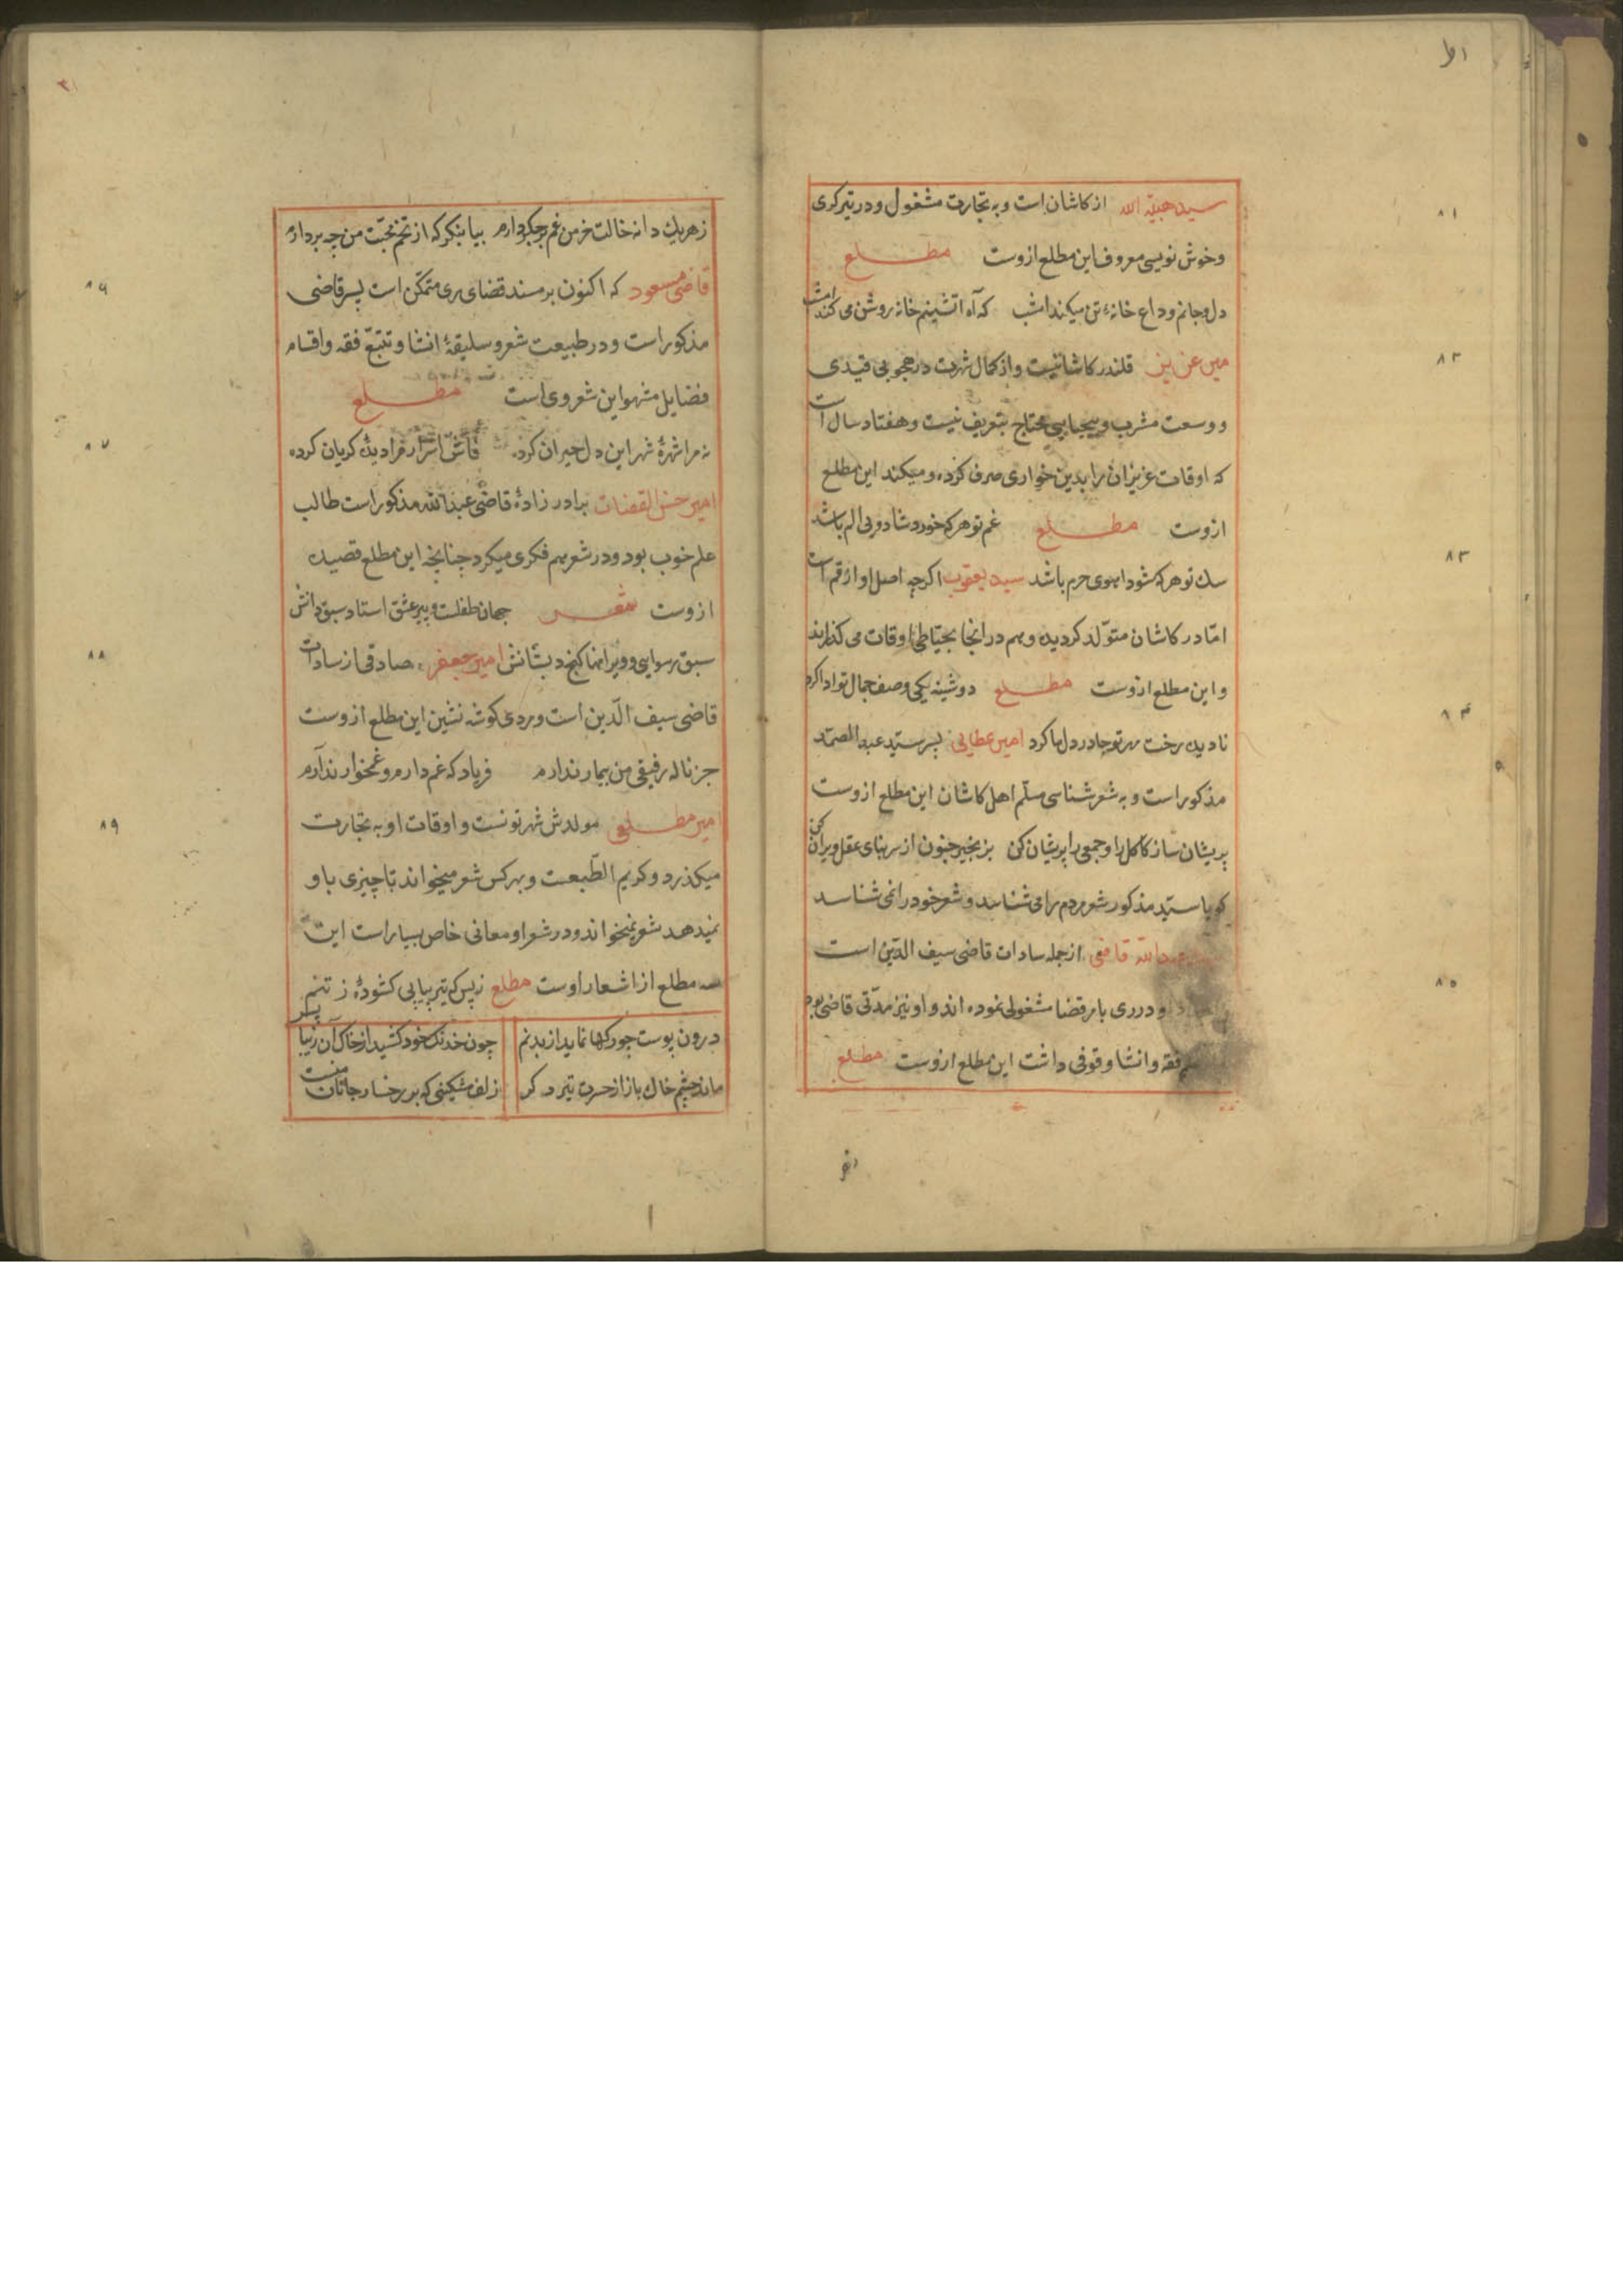 سید هبة الله از کاشان است و به تجارت مشغول و در تیرکری
وخوش نویسی معروف این مطلع ازوست مطلع
دل وجانم وداع خانهٔ تن میکند امشب که آه آتشینم خانه روشن می کند امشب
میر عزیز قلندر کاشانیست و از کمال شهرت در هجو و بی قیدی
و وسعت مشرب و بیحیایی محتاج بتعریف نیست وهفتاد سال است
که اوقات عزیزان را بدین خواری صرف کرده و میکند این مطلع
ازوست مطلع غم تو هرکه خورد شاد و بی الم باشد
سك تو هرکه شود اهوی حرم باشد سید یعقوب اکرچه اصل او از قم است
امّا در کاشان متولّد کردیده و هم در انجا بخیّاطی اوقات می کذراند
و این مطلع ازوست مطلع دوشینه یکی وصف جمال تو ادا کرد
نادیده رخت مهر تو جا در دل ما کرد امیر عطایی پسر سیّد عبد الصمد
مذکور است و به شعر شناسی مسلّم اهل کاشان این مطلع ازوست
پریشان ساز کاکل را و جمعی را پریشان کن بزنجیر جنون از سر بنای عقل ویران کن
کویا سیّد مذکور شعر مردم را می شناسد و شعر خود را نمی شناسد
عبد الله قاضی از جمله سادات قاضی سیف الدّین است
و در ری بامر قضا مشغولی نموده اند و او نیز مدّتی قاضی بود
فقه و انشا وقوفی داشت این مطلع ازوست مطلع
زهر یك دانه خالت خرمن غم بر جکر دارم بیا بنکر که از تخم محبّت من چه بر دارم
قاضی مسعود که اکنون بر مسند قضای ری متمکّن است پسر قاضی
مذکور است و در طبیعت شعر و سلیقهٔ انشا و تتبّع فقه و اقسام
فضایل مشهور این شعر وی است مطلع
نه مرا شهرهٔ شهر این دل حیران کرده فاش اسرار مرا دیدهٔ کریان کرده
امیر حسن القضات برادر زادهٔ قاضی عبد الله مذکور است طالب
علم خوب بود و در شعر هم فکری میکرد چنانچه این مطلع قصیده
ازوست شعر جهان طفلست و پیر عشق استاد سبق دانش
سبق رسوایی و ویرانها کنج دبستانش امیر جعفر صادقی از سادات
قاضی سیف الدّین است و مردی کوشه نشین این مطلع ازوست
جز ناله رفیقی من بیمار ندارم فریاد که غم دارم و غمخوار ندارم
امیر مطلعی مولدش شهر تونست و اوقات او به تجارت
میکذرد و کریم الطّبعت و بهر کس شعر میخواند تا چیزی باو
نمیدهد شعر نمیخواند و در شعر او معانی خاص بسیار است این
سه مطلع از اشعار اوست مطلع ز بس که تیر پیاپی کشودهٔ ز تنم
درون پوست چو رکها نماید از بدنم چون خدنک خود کشید از خاک آن زیبا پسر
ماند چشم خاك باز از حسرت تیر دکر زلف مشکینی که بر رخسار جانان منست